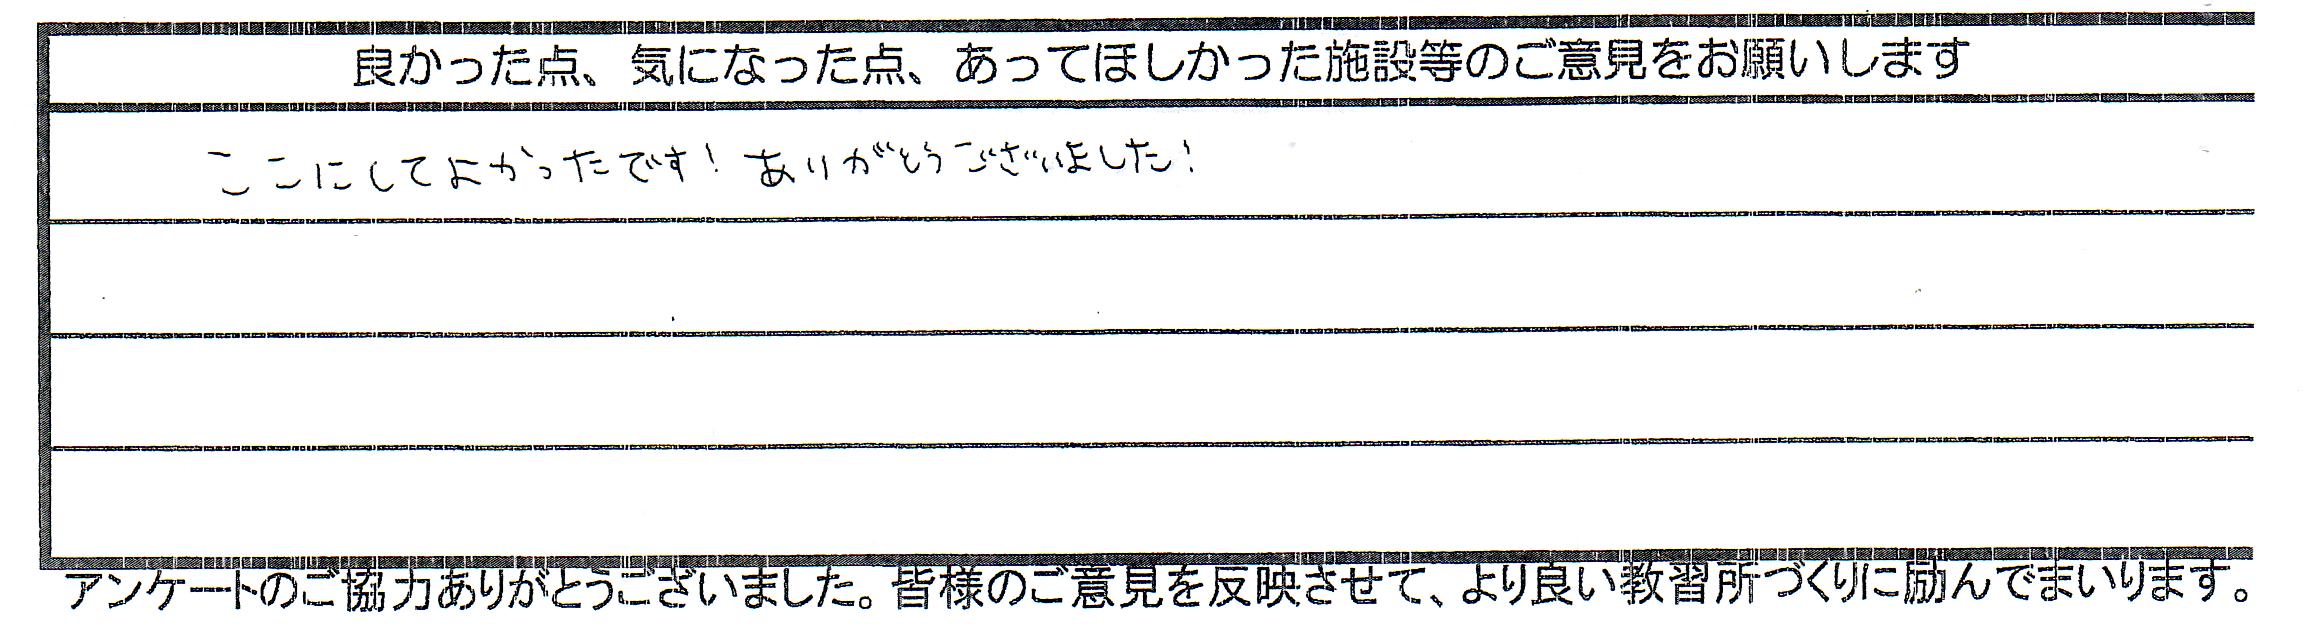 良かった点、気になった点、あってほしかった施設等のご意見をお願いします
ここにしてよかったです！ありがとうございました！
アンケートのご協力ありがとうございました。皆様のご意見を反映させて、より良い教習所づくりに励んでまいります。